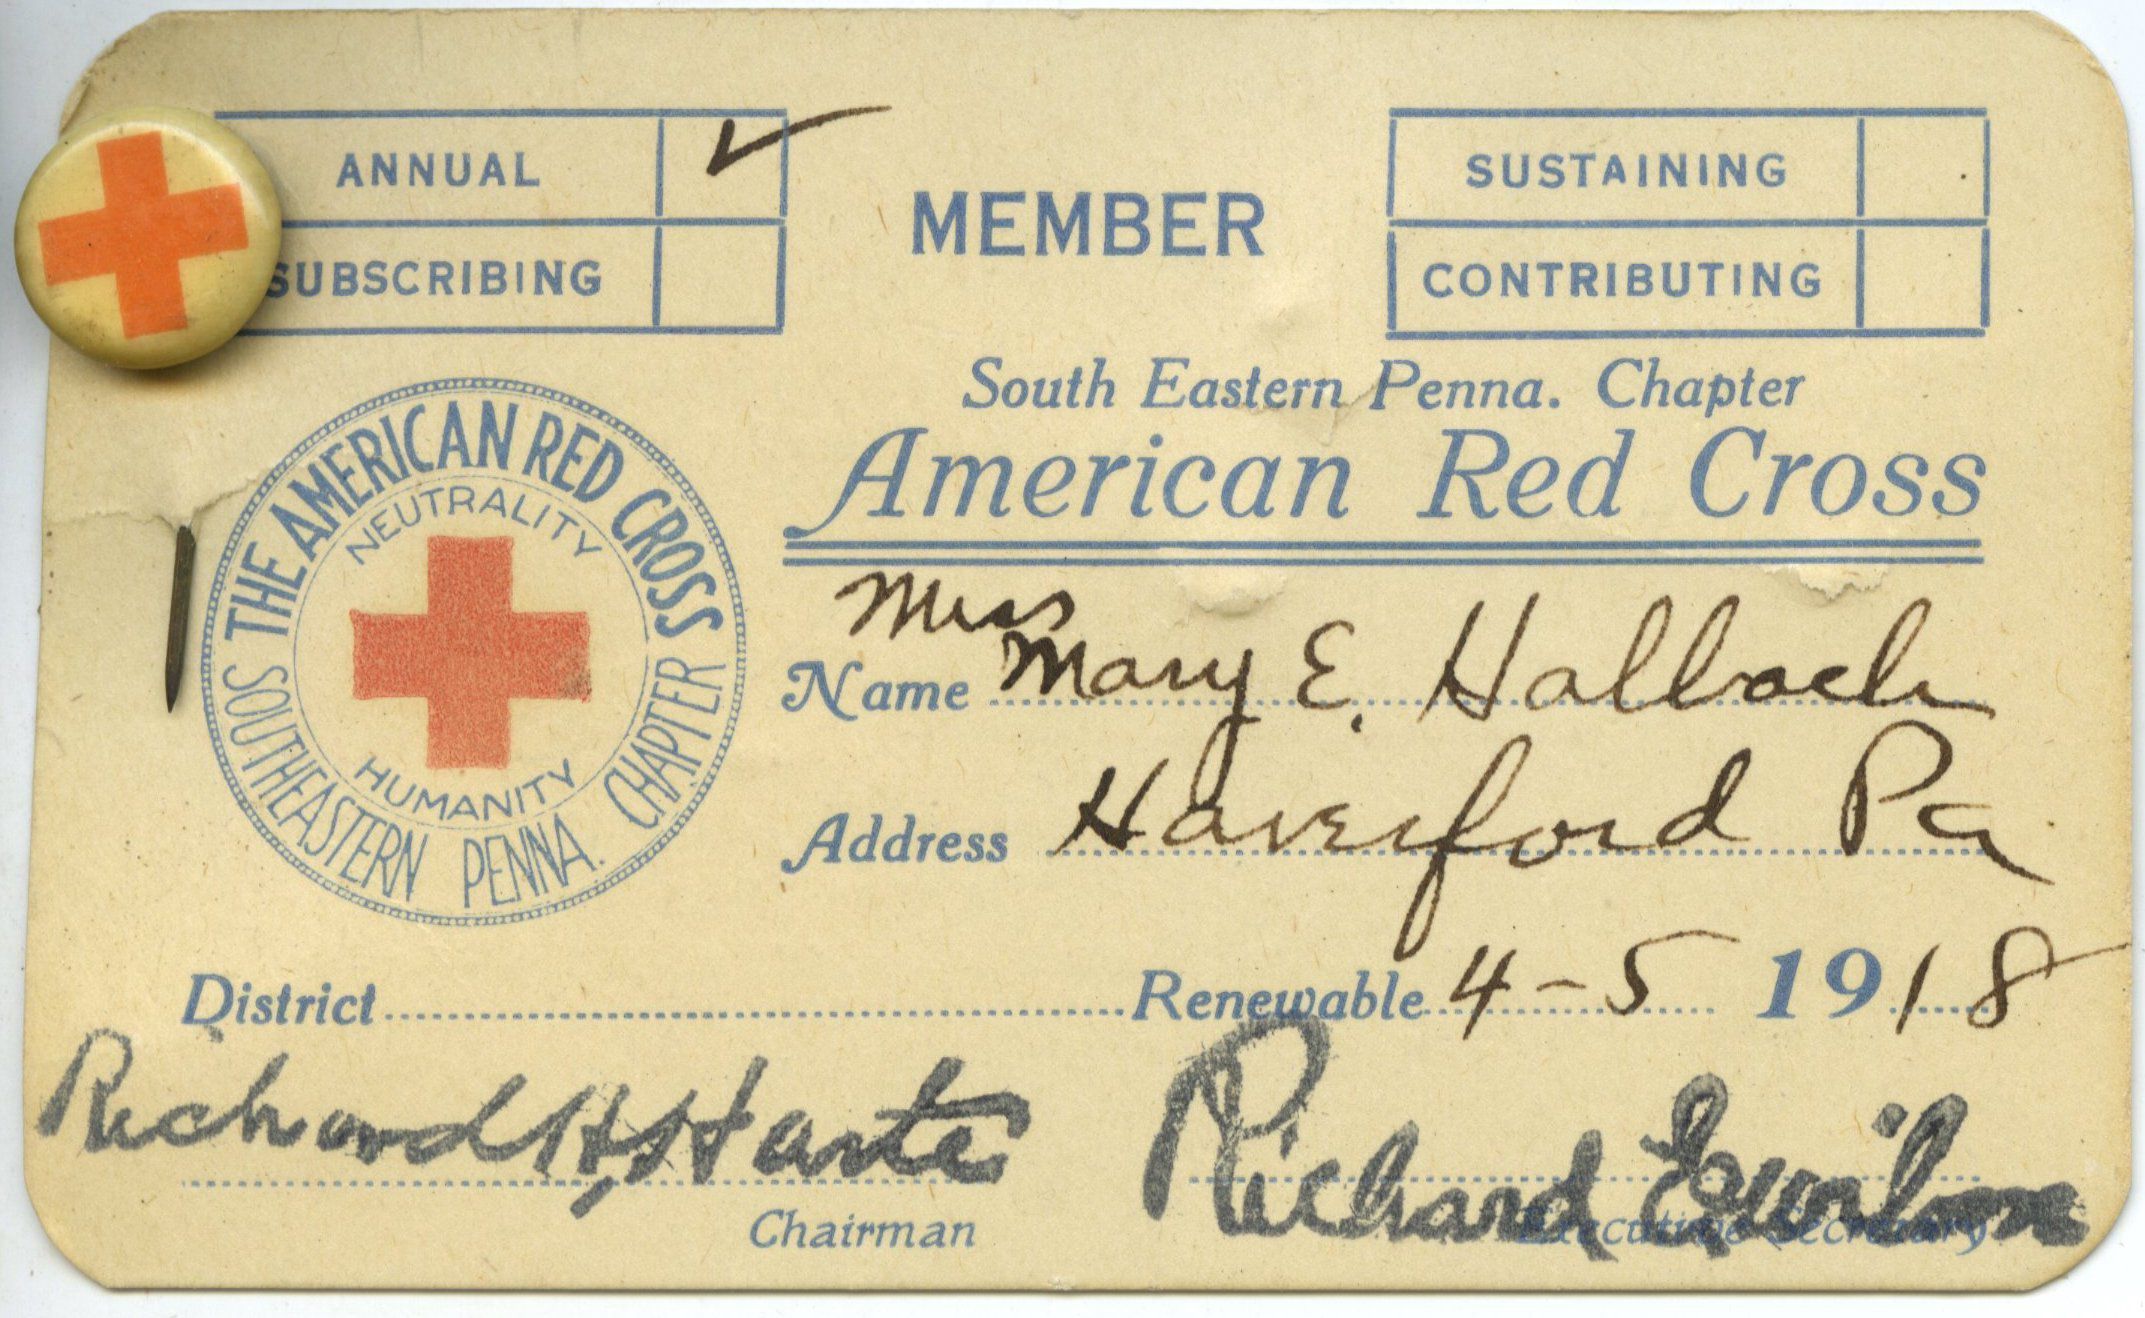 ANNUAL ✓
SUBSCRIBING
MEMBER
SUSTAINING
CONTRIBUTING
South Eastern Penna. Chapter
American Red Cross
THE AMERICAN RED CROSS
NEUTRALITY
HUMANITY
SOUTHEASTERN PENNA. CHAPTER
Miss
Name Mary E. Hallach
Address Haverford Pa
District Renewable 4-5 1918
Richard H Harte Richard E Wilson
Chairman Executive Secretary